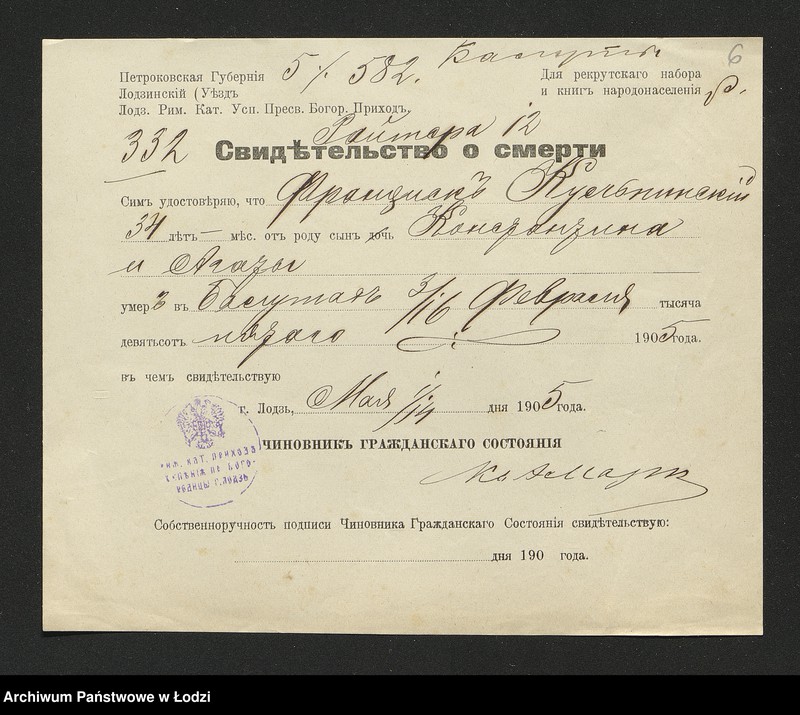 5/. 582. Балуты 6
Петроковская Губернія
Лодзинскій (Уѣздъ
Лодз. Рим. Кат. Усп. Пресв. Богор. Приход.
Для рекрутскаго набора
и книгъ народонаселенія
332 Раймера 12
Свидѣтельство о смерти
Симъ удостовѣряю, что Францискъ
34 лѣтъ — мѣс. отъ роду сынъ дочь Константина
и Агаты
умеръ въ Балутахъ 3/16 Февраля тысяча
девятьсотъ пятаго 1905 года.
въ чемъ свидѣтельствую
г. Лодзь, Мая 1/14 дня 1905 года.
ЧИНОВНИКЪ ГРАЖДАНСКАГО СОСТОЯНІЯ
РИМ. КАТ. ПРИХОДА
УСПѢНІЯ ПР. БОГО-
РОДИЦЫ Г. ЛОДЗЬ
Собственноручность подписи Чиновника Гражданскаго Состоянія свидѣтельствую:
дня 190 года.
Archiwum Państwowe w Łodzi